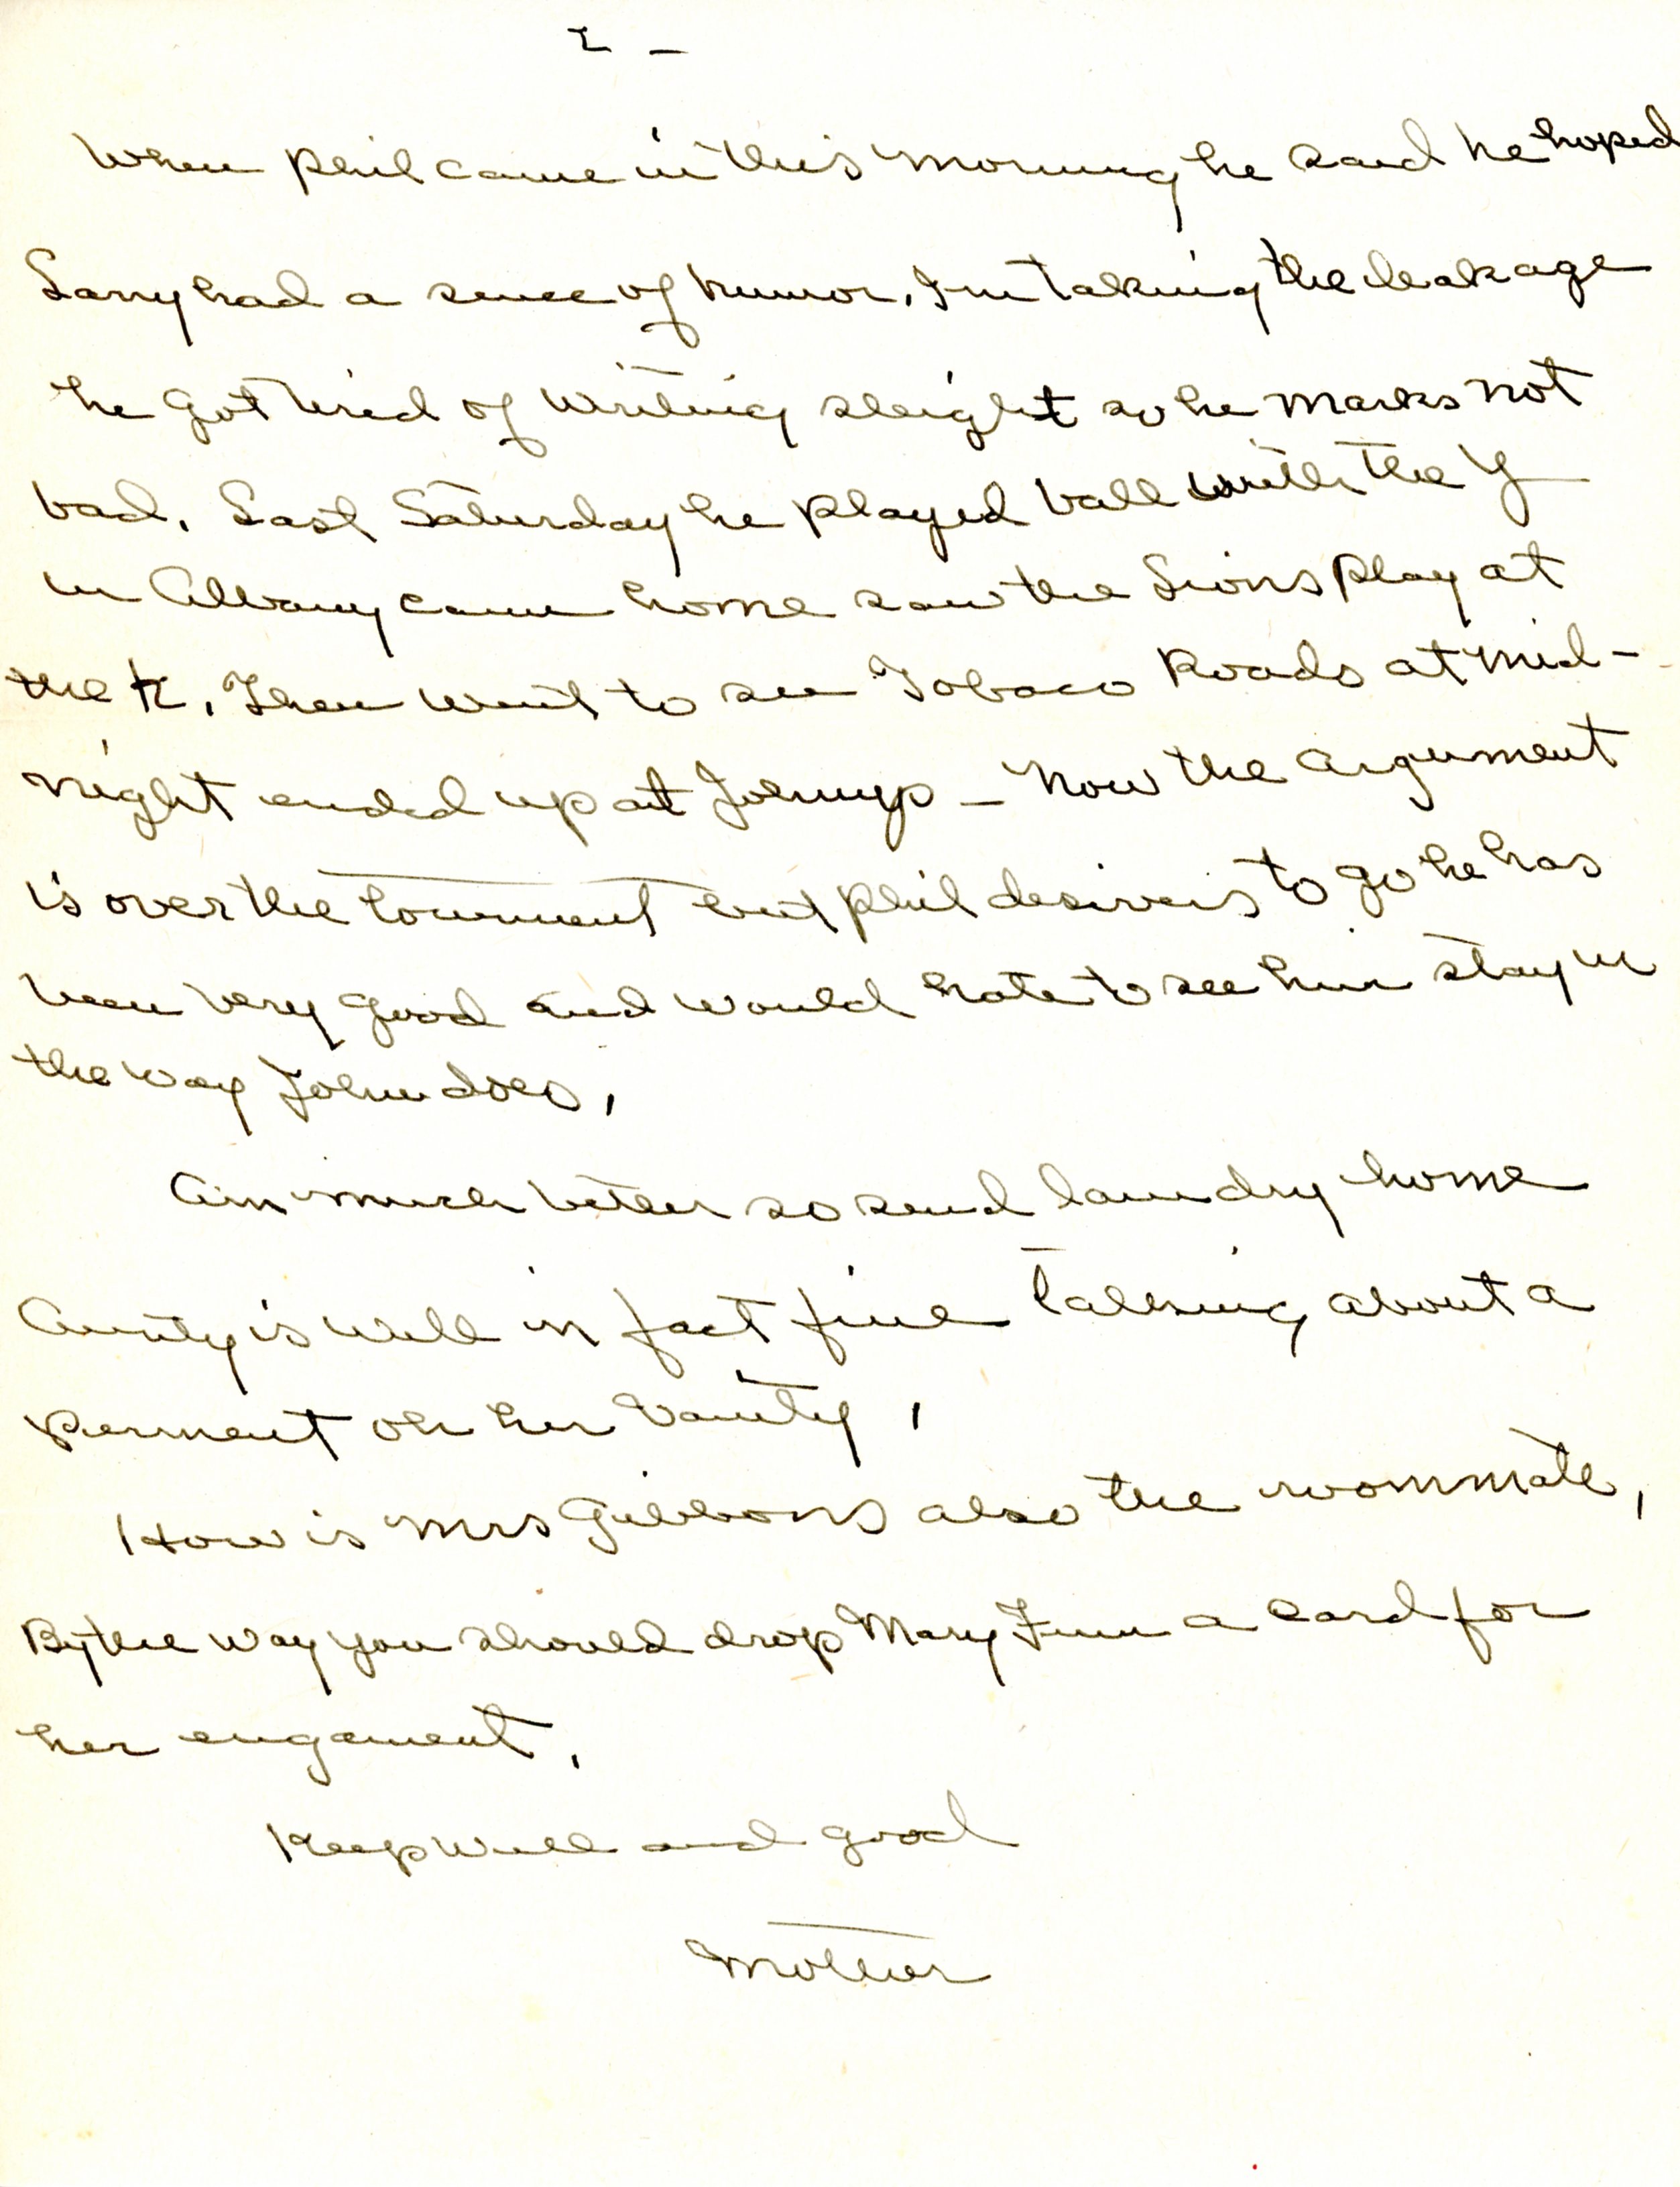 2 -
When Phil came in this morning he said he hoped
Larry had a sence of humor. In taking the leakage
he got tired of writing sleight so he marks not
bad. Last Saturday he played ball with the Y
in Albany came home saw the Lions play at
the K. Then went to see Tobaco Roads at mid-
night ended up at Johnnys - Now the argument
is over the tournment but Phil desires to go he has
been very good and would hate to see him stay in
the way John does.
Am much better so send laundry home
Aunty is well in fact fine talking about a
perment oh her vanity.
How is Mrs Gibbons also the roommate,
By the way you should drop Mary Finn a card for
her engament.
Keep well and good
Mother